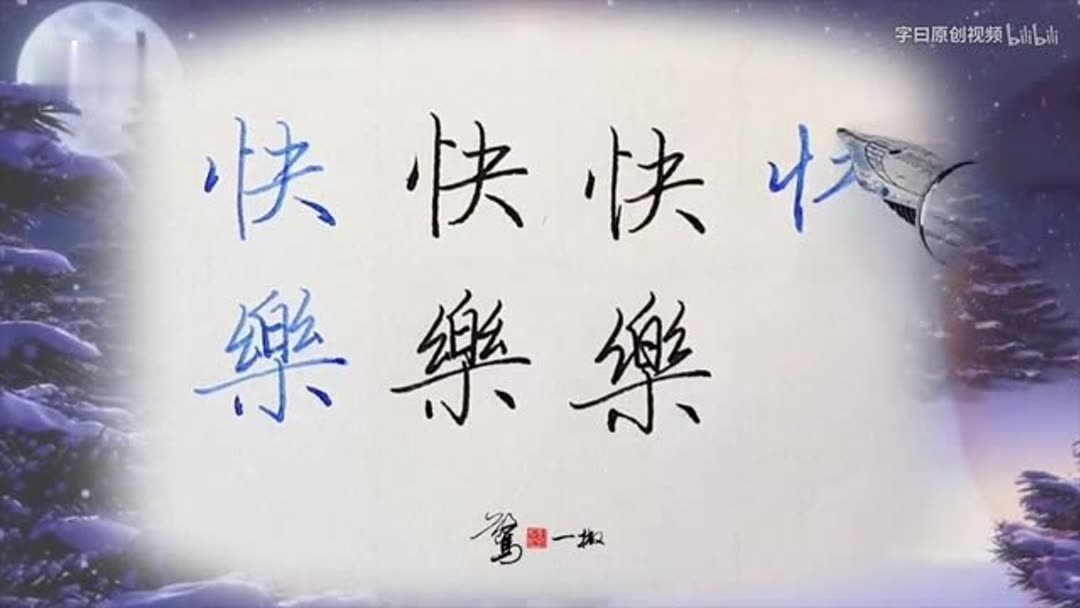 字曰原创视频 bilibili
快 快 快
樂 樂 樂
一撒